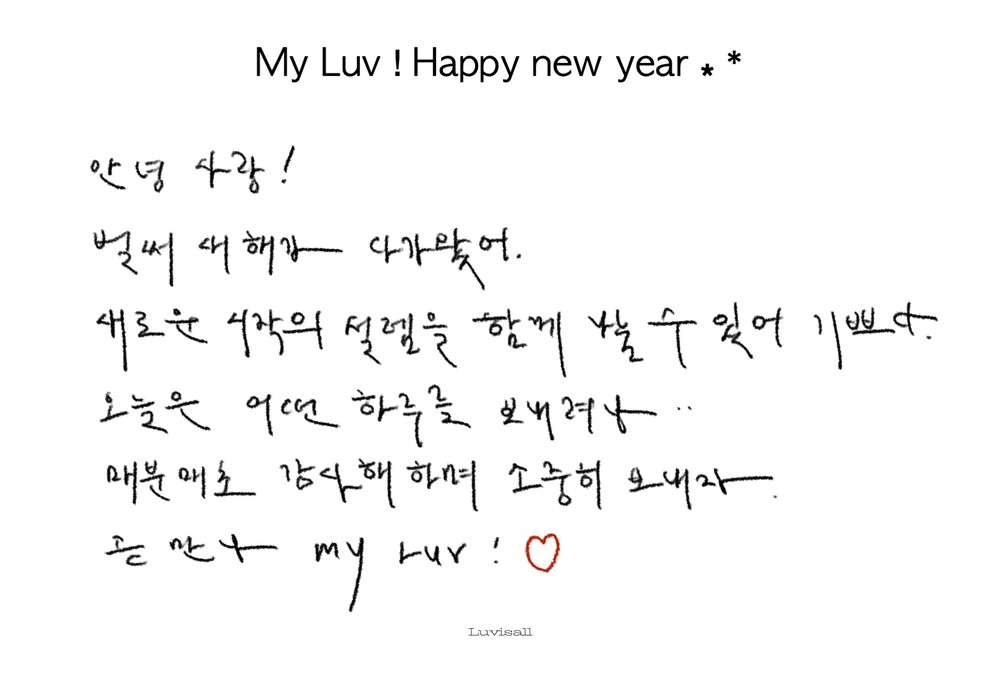 My Luv ! Happy new year * *
안녕 사랑!
벌써 새해가 다가왔어.
새로운 시작의 설렘을 함께 나눌 수 있어 기쁘다.
오늘은 어떤 하루를 보내려나 ..
매분매초 감사해 하며 소중히 보내자.
곧 만나 my Luv ! ♡
Luvisall